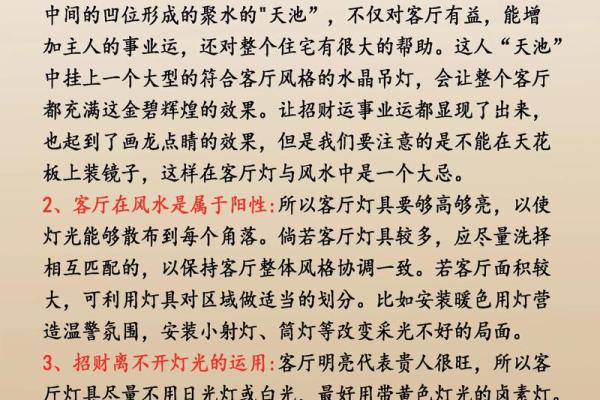 中间的凹位形成的聚水的"天池”，不仅对客厅有益，能增
加主人的事业运，还对整个住宅有很大的帮助。这人“天池”
中挂上一个大型的符合客厅风格的水晶吊灯，会让整个客厅
都充满这金碧辉煌的效果。让招财运事业运都显现了出来，
也起到了画龙点睛的效果，但是我们要注意的是不能在天花
板上装镜子，这样在客厅灯与风水中是一个大忌。
2、客厅在风水是属于阳性:所以客厅灯具要够高够亮，以使
灯光能够散布到每个角落。倘若客厅灯具较多，应尽量洗择
相互匹配的，以保持客厅整体风格协调一致。若客厅面积较
大，可利用灯具对区域做适当的划分。比如安装暖色用灯营
造温警氛围，安装小射灯、筒灯等改变采光不好的局面。
3、招财离不开灯光的运用:客厅明亮代表贵人很旺，所以客
厅灯具尽量不用日光灯或白光，最好用带黄色灯光的卤素灯。